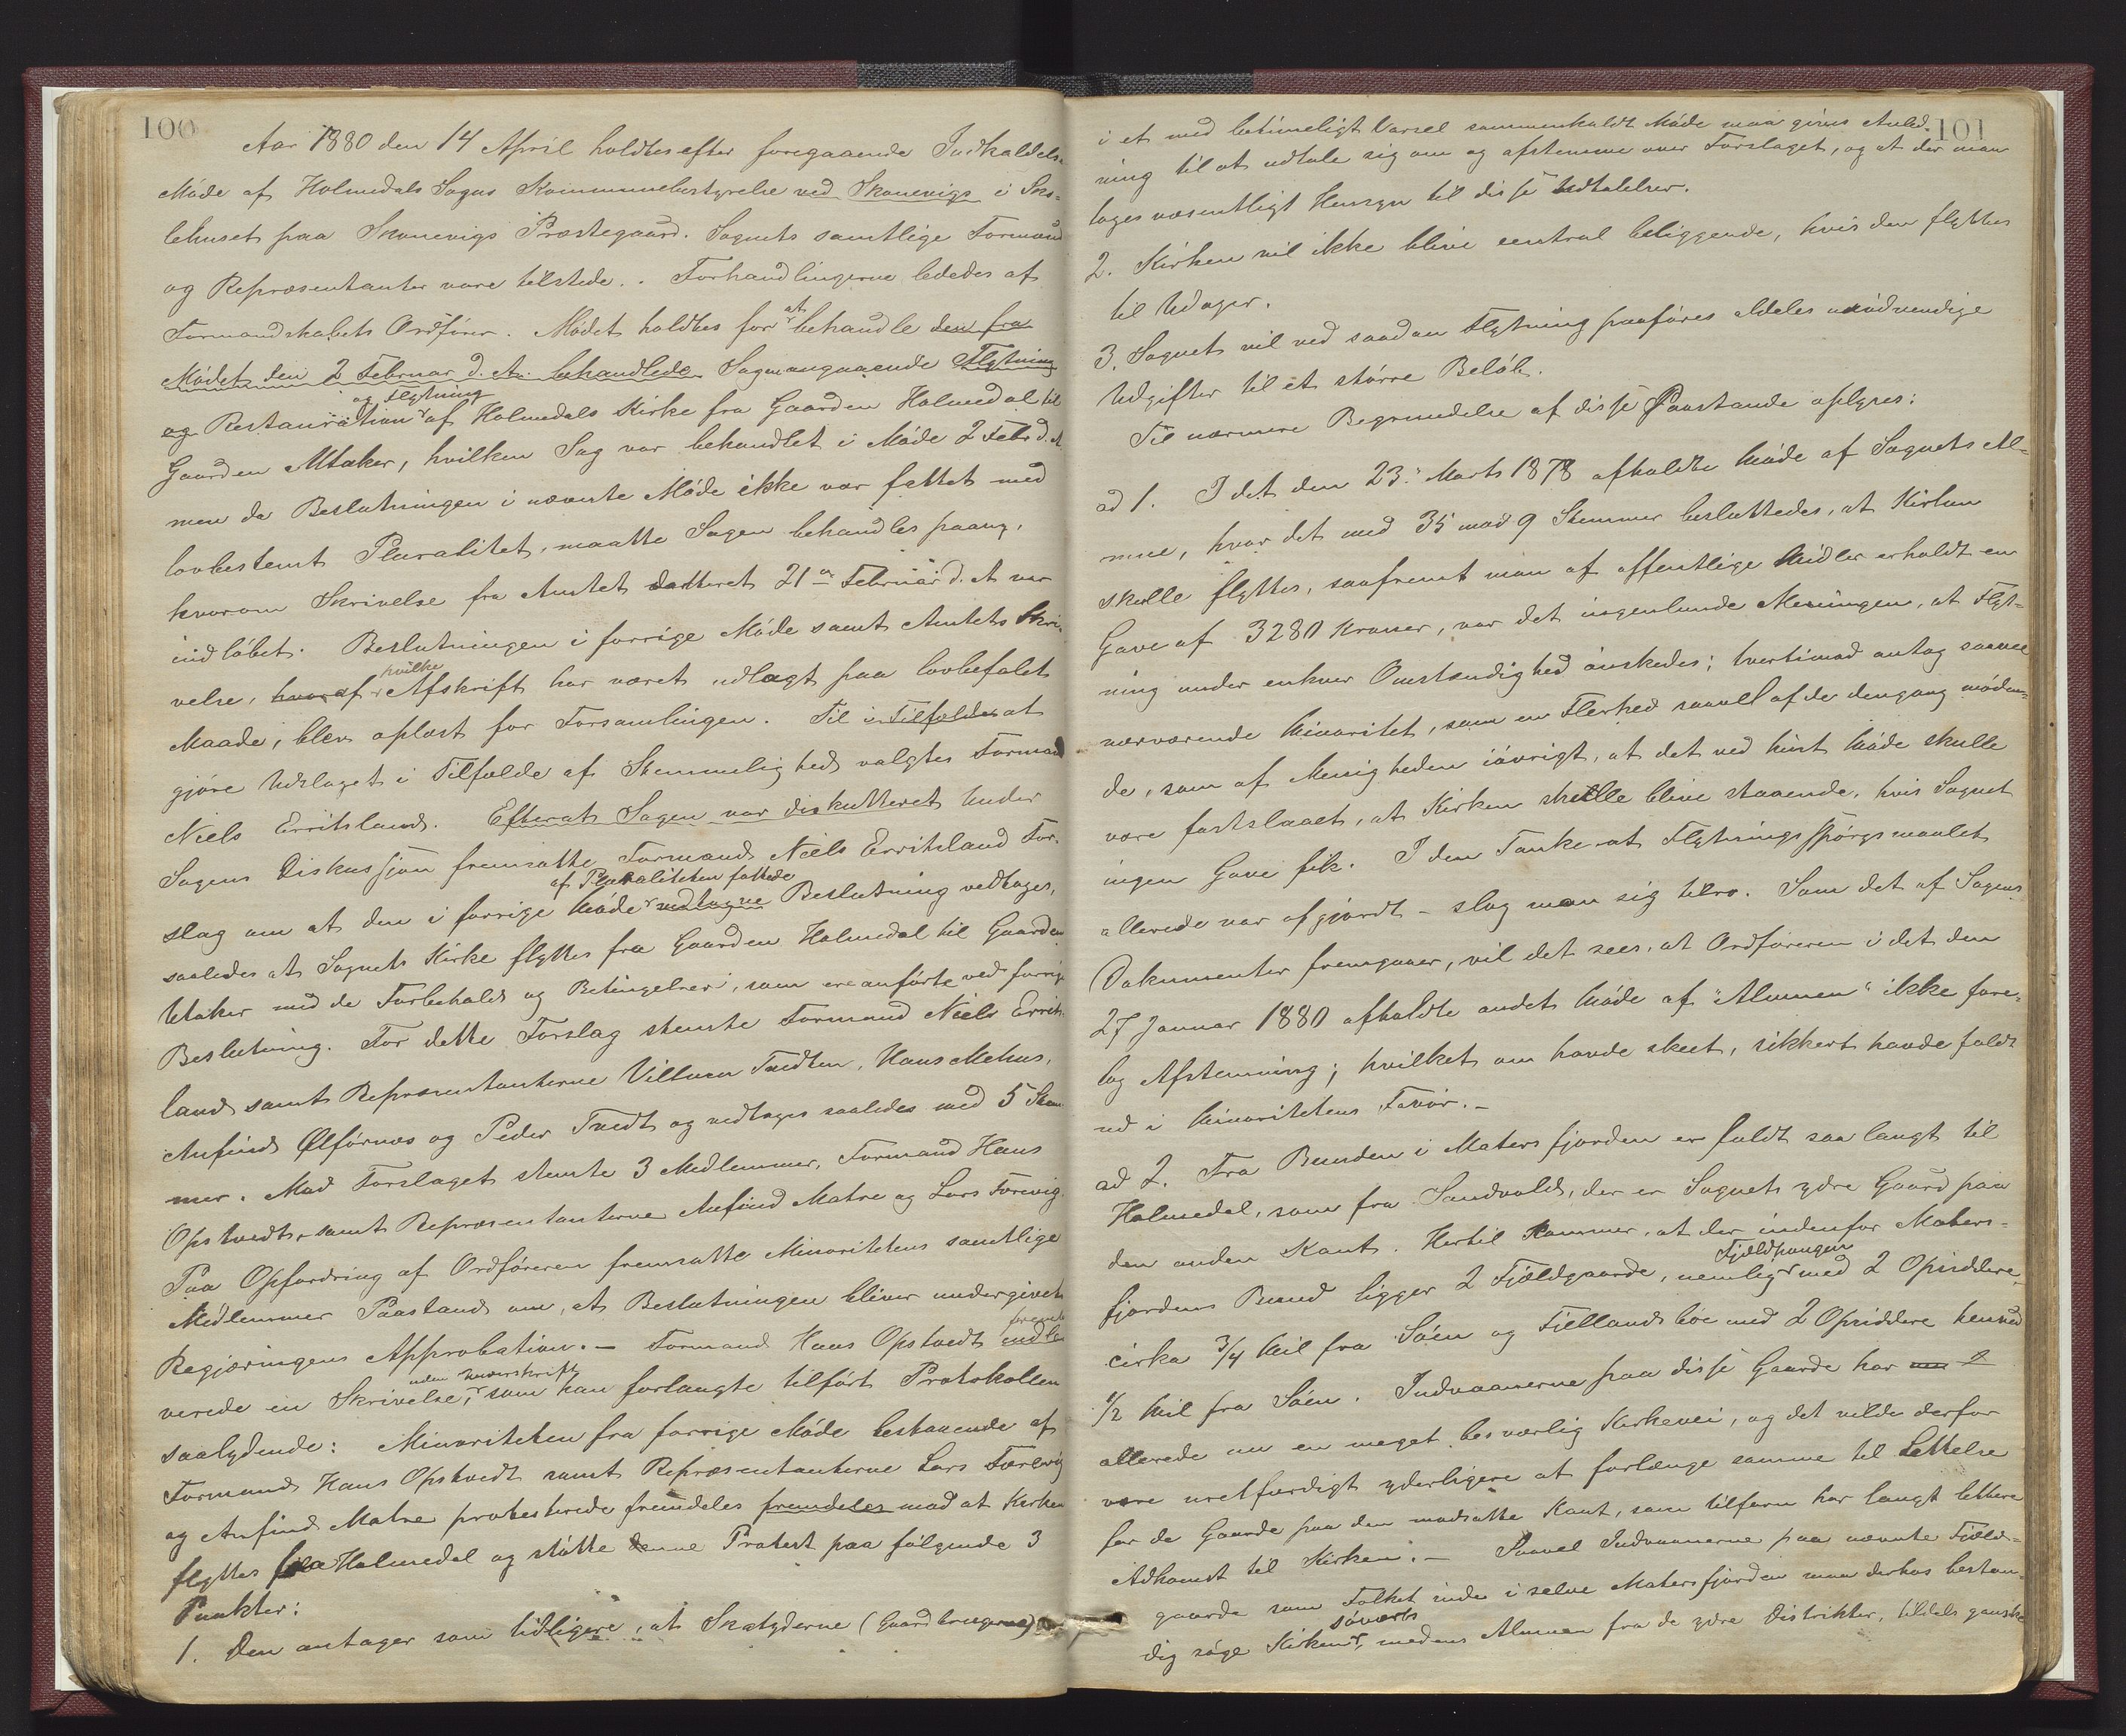 100
Aar 1880 den 14 April holdtes efter foregaaende Indkaldelse
Møde af Holmedals Sogns Kommunebestyrelse ved Skonevigs i Sko-
lehuset paa Skonevigs Præstegaard. Sognets samtlige Formænd
og Repræsentanter vare tilstede. Forhandlingerne lededes af
Formandskabets Ordfører. Mødet holdtes for at behandle den fra
Mødet den 2 Februar d. A. behandlede Sag angaaende Flytning
og Restauration og Flytning af Holmedals Kirke fra Gaarden Holmedal til
Gaarden Utaker, hvilken Sag var behandlet i Møde 2 Febr d. A.
men da Beslutningen i nævnte Møde ikke var fattet med
lovbestemt Pluralitet, maatte Sagen behandles paany,
hvorom Skrivelse fra Amtet datteret 21de Februar d. A. var
indløbet. Beslutningen i forrige Møde samt Amtets Skri-
velse, hvoraf hvilke Afskrift har været udlagt paa lovbefalet
Maade, blev oplæst for Forsamlingen. Til i Tilfælde at
gjøre Udslaget i Tilfælde af Stemmelighed valgtes Formand
Niels Erritsland. Efterat Sagen var diskutteret Under
Sagens Diskussjon fremsatte Formand Niels Erritsland For-
slag om at den i forrige Møde af Pluraliteten fattede vedtagne Beslutning vedtages,
saaledes at Sognets Kirke flyttes fra Gaarden Holmedal til Gaarden
Utaker med de Forbehold og Betingelser, som ere anførte ved forrige
Beslutning. For dette Forslag stemte Formand Niels Errits-
land samt Repræsentanterne Villum Tvedten, Hans Mehus,
Anfind Ølførnæs og Peder Tvedt og vedtoges saaledes med 5 Stem-
mer. Mod Forslaget stemte 3 Medlemmer, Formand Hans
Opstvedt, samt Repræsentanterne Anfind Matre og Lars Færevig.
Paa Opfordring af Ordføreren fremsatte Minoritetens samtlige
Medlemmer Paastand om, at Beslutningen bliver undergivet
Regjæringens Approbation. – Formand Hans Opstvedt
verede en Skrivelse, uden Underskrift, som han forlangte tilført Protokollen
saalydende: Minoriteten fra forrige Møde bestaaende af
Formand Hans Opstvedt samt Repræsentanterne Lars Færevig
og Anfind Matre protesterede fremdeles fremdeles mod at Kirken
flyttes fra Holmedal og støtte denne Protest paa følgende 3
Punkter:
1. Den antager som tidligere, at Skatyderne (Gaardbrugerne)
101
i et med betimeligt Varsel sammenkaldt Møde maa gives Anled-
ning til at udtale sig om og afstemme over Forslaget, og at der maa
tages væsentligt Hensyn til disse Udtalelser.
2. Kirken vil ikke blive central beliggende, hvis den flyttes
til Utager.
3. Sognet vil ved saadan Flytning paaføres aldeles unødvendige
Udgifter til et større Beløb.
Til nærmere Begrundelse af disse Paastande oplyses:
ad 1. I det den 23de Marts 1878 afholdte Møde af Sognets Al-
mue, hvor det med 35 mod 9 Stemmer besluttedes, at Kirken
skulle flyttes, saafremt man af offentlige Midler erholdt en
Gave af 3280 Kroner, var det ingenlunde Meningen, at Flyt-
ning under enhver Omstændighed ønskedes; tvertimod antog saavel
nærværende Minoritet, som en Flerhed saavel af de dengang møden-
de, som af Menigheden iøvrigt, at det ved hint Møde skulle
være fastslaaet, at Kirken skulle blive staaende, hvis Sognet
ingen Gave fik. I den Tanke at Flytningsspørgsmaalet
allerede var afgjordt – slog man sig tilro. Som det af Sagens
Dokumenter fremgaaer, vil det sees, at Ordføreren i det den
27 Januar 1880 afholdte andet Møde af "Almuen" ikke fore-
tog Afstemning; hvilket om havde skeet, sikkert havde faldt
ud i Minoritetens Favør. –
ad 2. Fra Bunden i Matersfjorden er fuldt saa langt til
Holmedal, som fra Sandvold, der er Sognets ydre Gaard paa
den anden Kant. Hertil kommer, at der indenfor Maters-
fjordens Bund ligger 2 Fjeldgaarde, nemlig Fjeldhaugen med 2 Opsiddere
cirka 3/4 Mil fra Søen og Fjellandsbøe med 2 Opsiddere henved
1/2 Mil fra Søen. Indvaanerne paa disse Gaarde har
allerede nu en meget besværlig Kirkevei, og det vilde derfor
være uretfærdigt yderligere at forlænge samme til Lettelse
for de Gaarde paa den modsatte Kant, som tilforn har langt lettere
Adkomst til Kirken. – Saavel Indvaanerne paa nævnte Fjeld-
gaarde som Folket inde i selve Matersfjorden maa derhos bestan-
dig søge Kirken søværts, medens Almuen fra de ydre Distrikter, tildels ganske